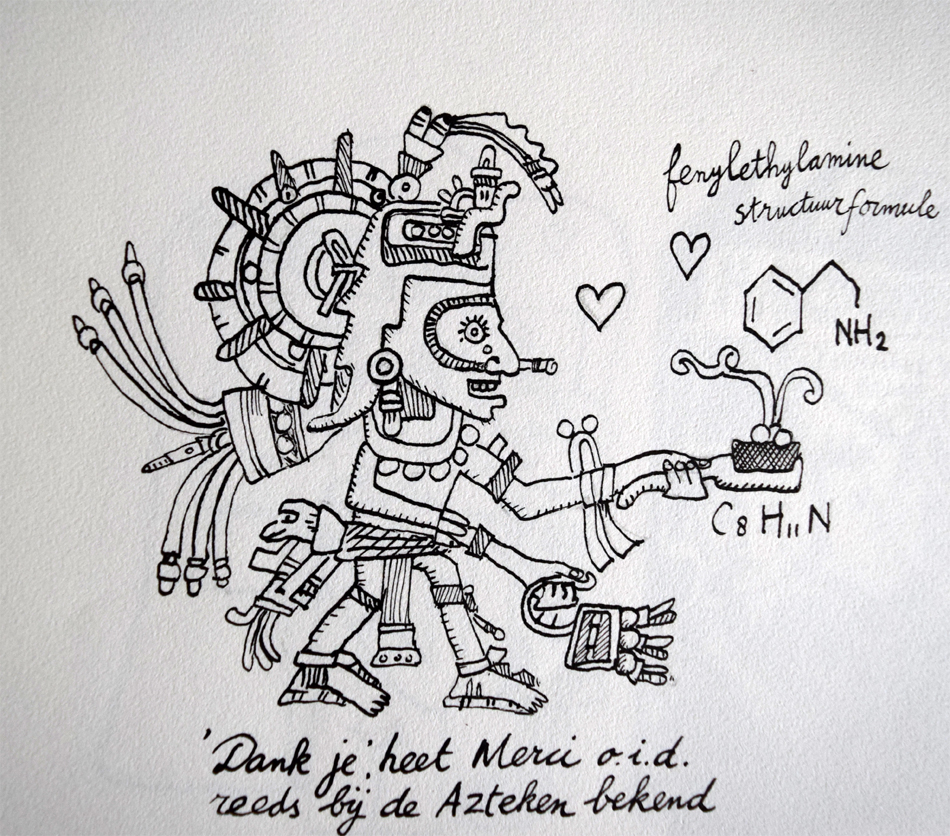 fenylethylamine
structuurformule
NH₂
C₈H₁₁N
'Dank je', heet Merci o.i.d.
reeds bij de Azteken bekend